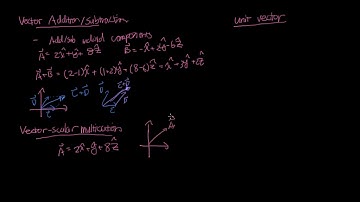 Vector Addition/Subtraction
- Add/sub individ components
A⃗ = 2x̂ + ŷ + 8ẑ    B⃗ = -x̂ + 2ŷ - 6ẑ
A⃗+B⃗ = (2-1)x̂ + (1+2)ŷ + (8-6)ẑ = x̂ + 3ŷ + 2ẑ
C⃗+D⃗
Vector-scalar multiplication
A⃗ = 2x̂ + ŷ + 8ẑ
unit vector